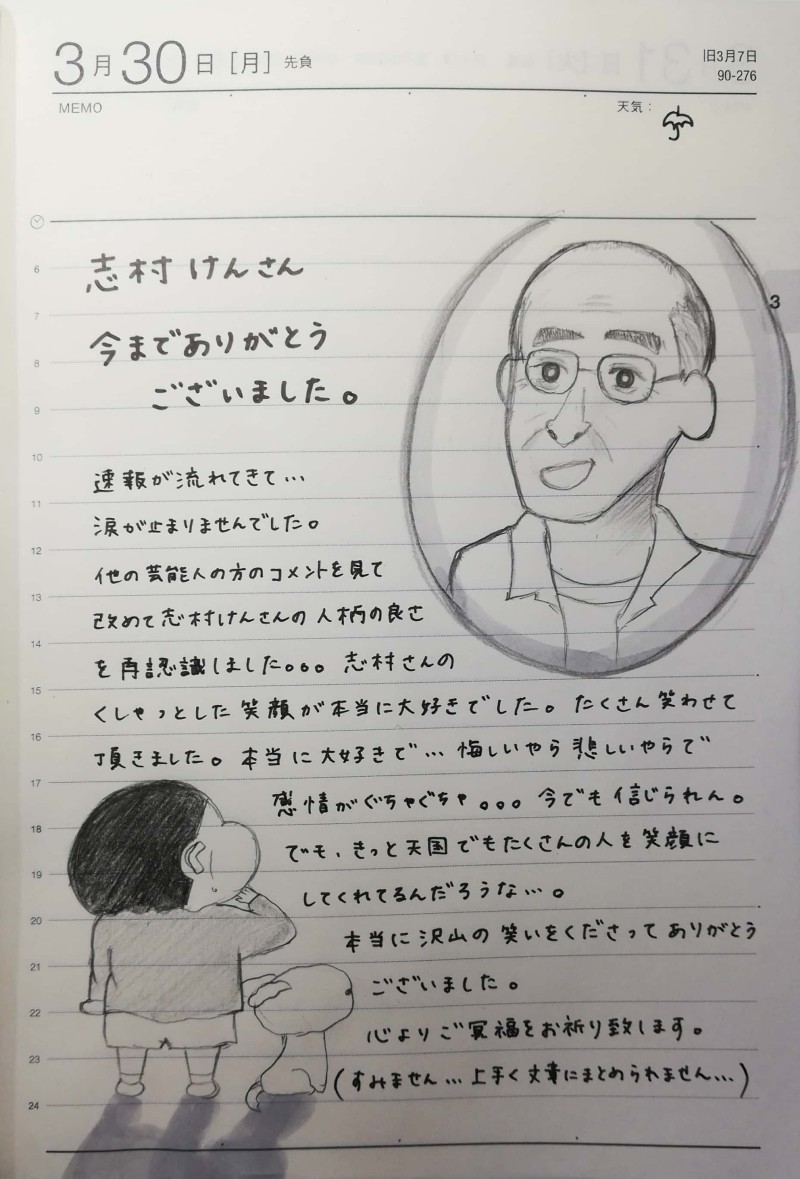 3月30日［月］先負
旧3月7日
90-276
MEMO
天気：
志村けんさん
今までありがとう
ございました。
速報が流れてきて…
涙が止まりませんでした。
他の芸能人の方のコメントを見て
改めて志村けんさんの人柄の良さ
を再認識しました。。。志村さんの
くしゃっとした笑顔が本当に大好きでした。たくさん笑わせて
頂きました。本当に大好きで…悔しいやら悲しいやらで
感情がぐちゃぐちゃ。。。今でも信じられん。
でも、きっと天国でもたくさんの人を笑顔に
してくれてるんだろうな…。
本当に沢山の笑いをくださってありがとう
ございました。
心よりご冥福をお祈り致します。
(すみません…上手く文章にまとめられません…)
3
6
7
8
9
10
11
12
13
14
15
16
17
18
19
20
21
22
23
24